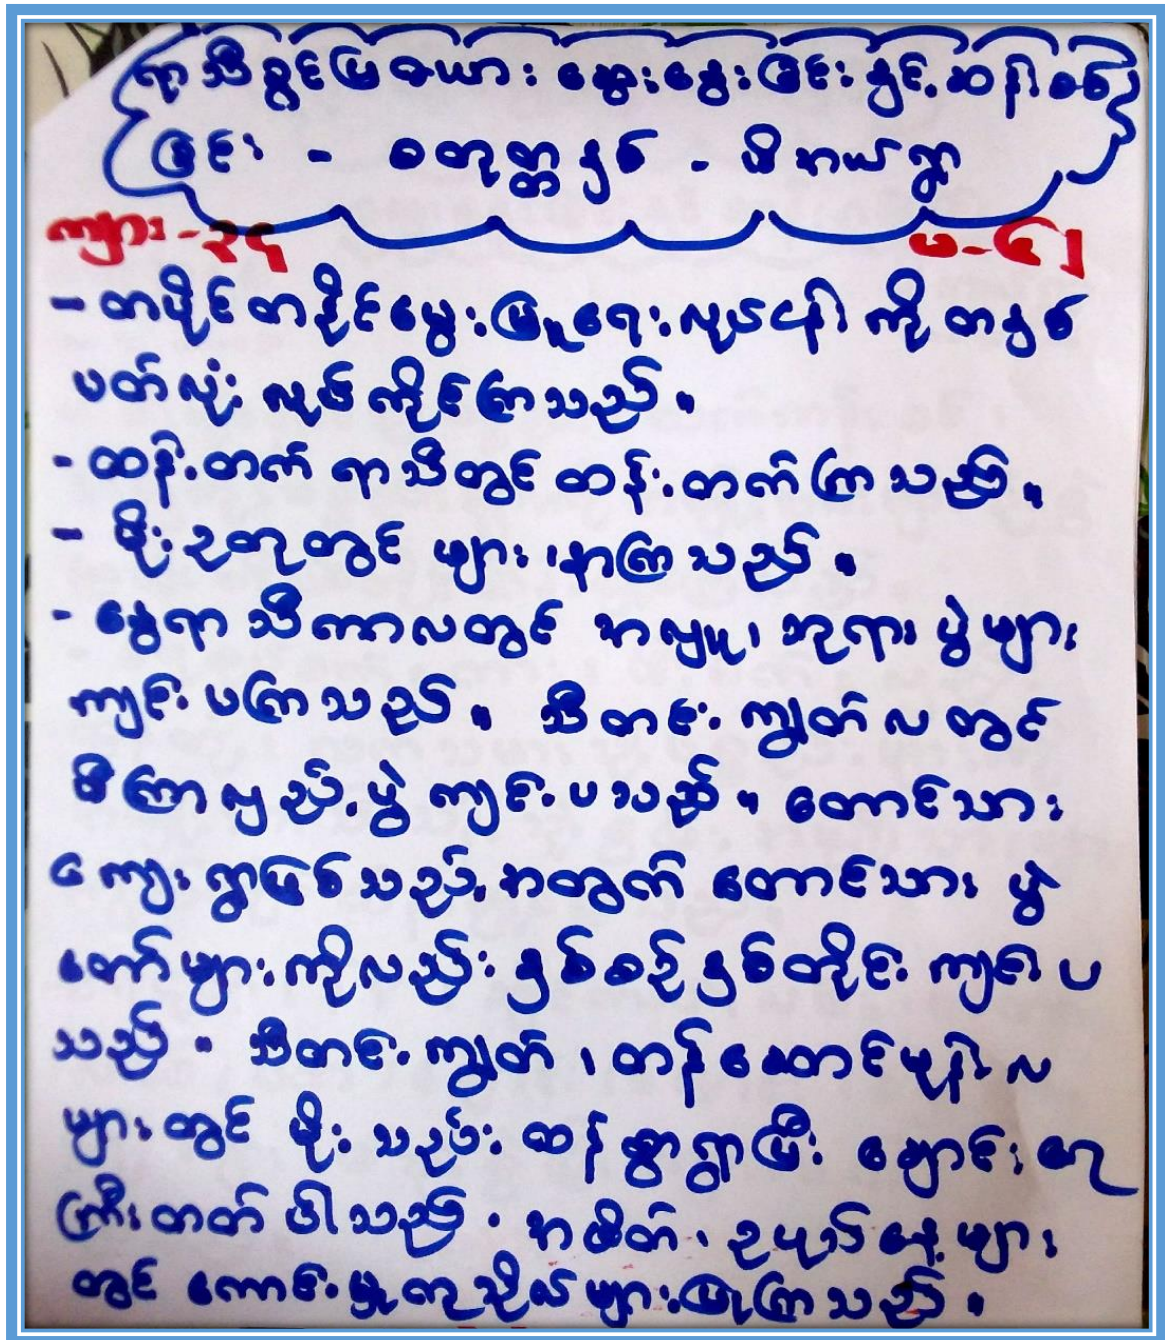 ရာသီခွင်ပြဇယား ဆွေးနွေးခြင်းနှင့် ဆန်းစစ်
ခြင်း - စတုတ္ထနှစ် - အိအယ်ရွာ
ကျား - ၃၄ မ - ၆၂
- တပိုင်တနိုင်မွေးမြူရေးလုပ်ငန်း ကို တနှစ်
ပတ်လုံး လုပ်ကိုင်ကြသည်။
- ထန်းတက် ရာသီတွင် ထန်းတက်ကြသည်။
- မိုးဥတုတွင် ဖျားနာကြသည်။
- နွေရာသီကာလတွင် အလှူ၊ ဘုရားပွဲများ
ကျင်းပကြသည်။ သီတင်းကျွတ်လတွင်
မီးကြာလှည့်ပွဲ ကျင်းပသည်။ တောင်သား
ကျေးရွာဖြစ်သည့်အတွက် တောင်သားပွဲ
တော်များကိုလည်း နှစ်စဉ်နှစ်တိုင်း ကျင်းပ
သည်။ သီတင်းကျွတ်၊ တန်ဆောင်မုန်းလ
များတွင် မိုးသည်းထန်စွာရွာပြီး ချောင်းရေ
ကြီးတတ်ပါသည်။ အဖိတ်၊ ဥပုသ်နေ့များ
တွင် ကောင်းမှုကုသိုလ်များပြုကြသည်။